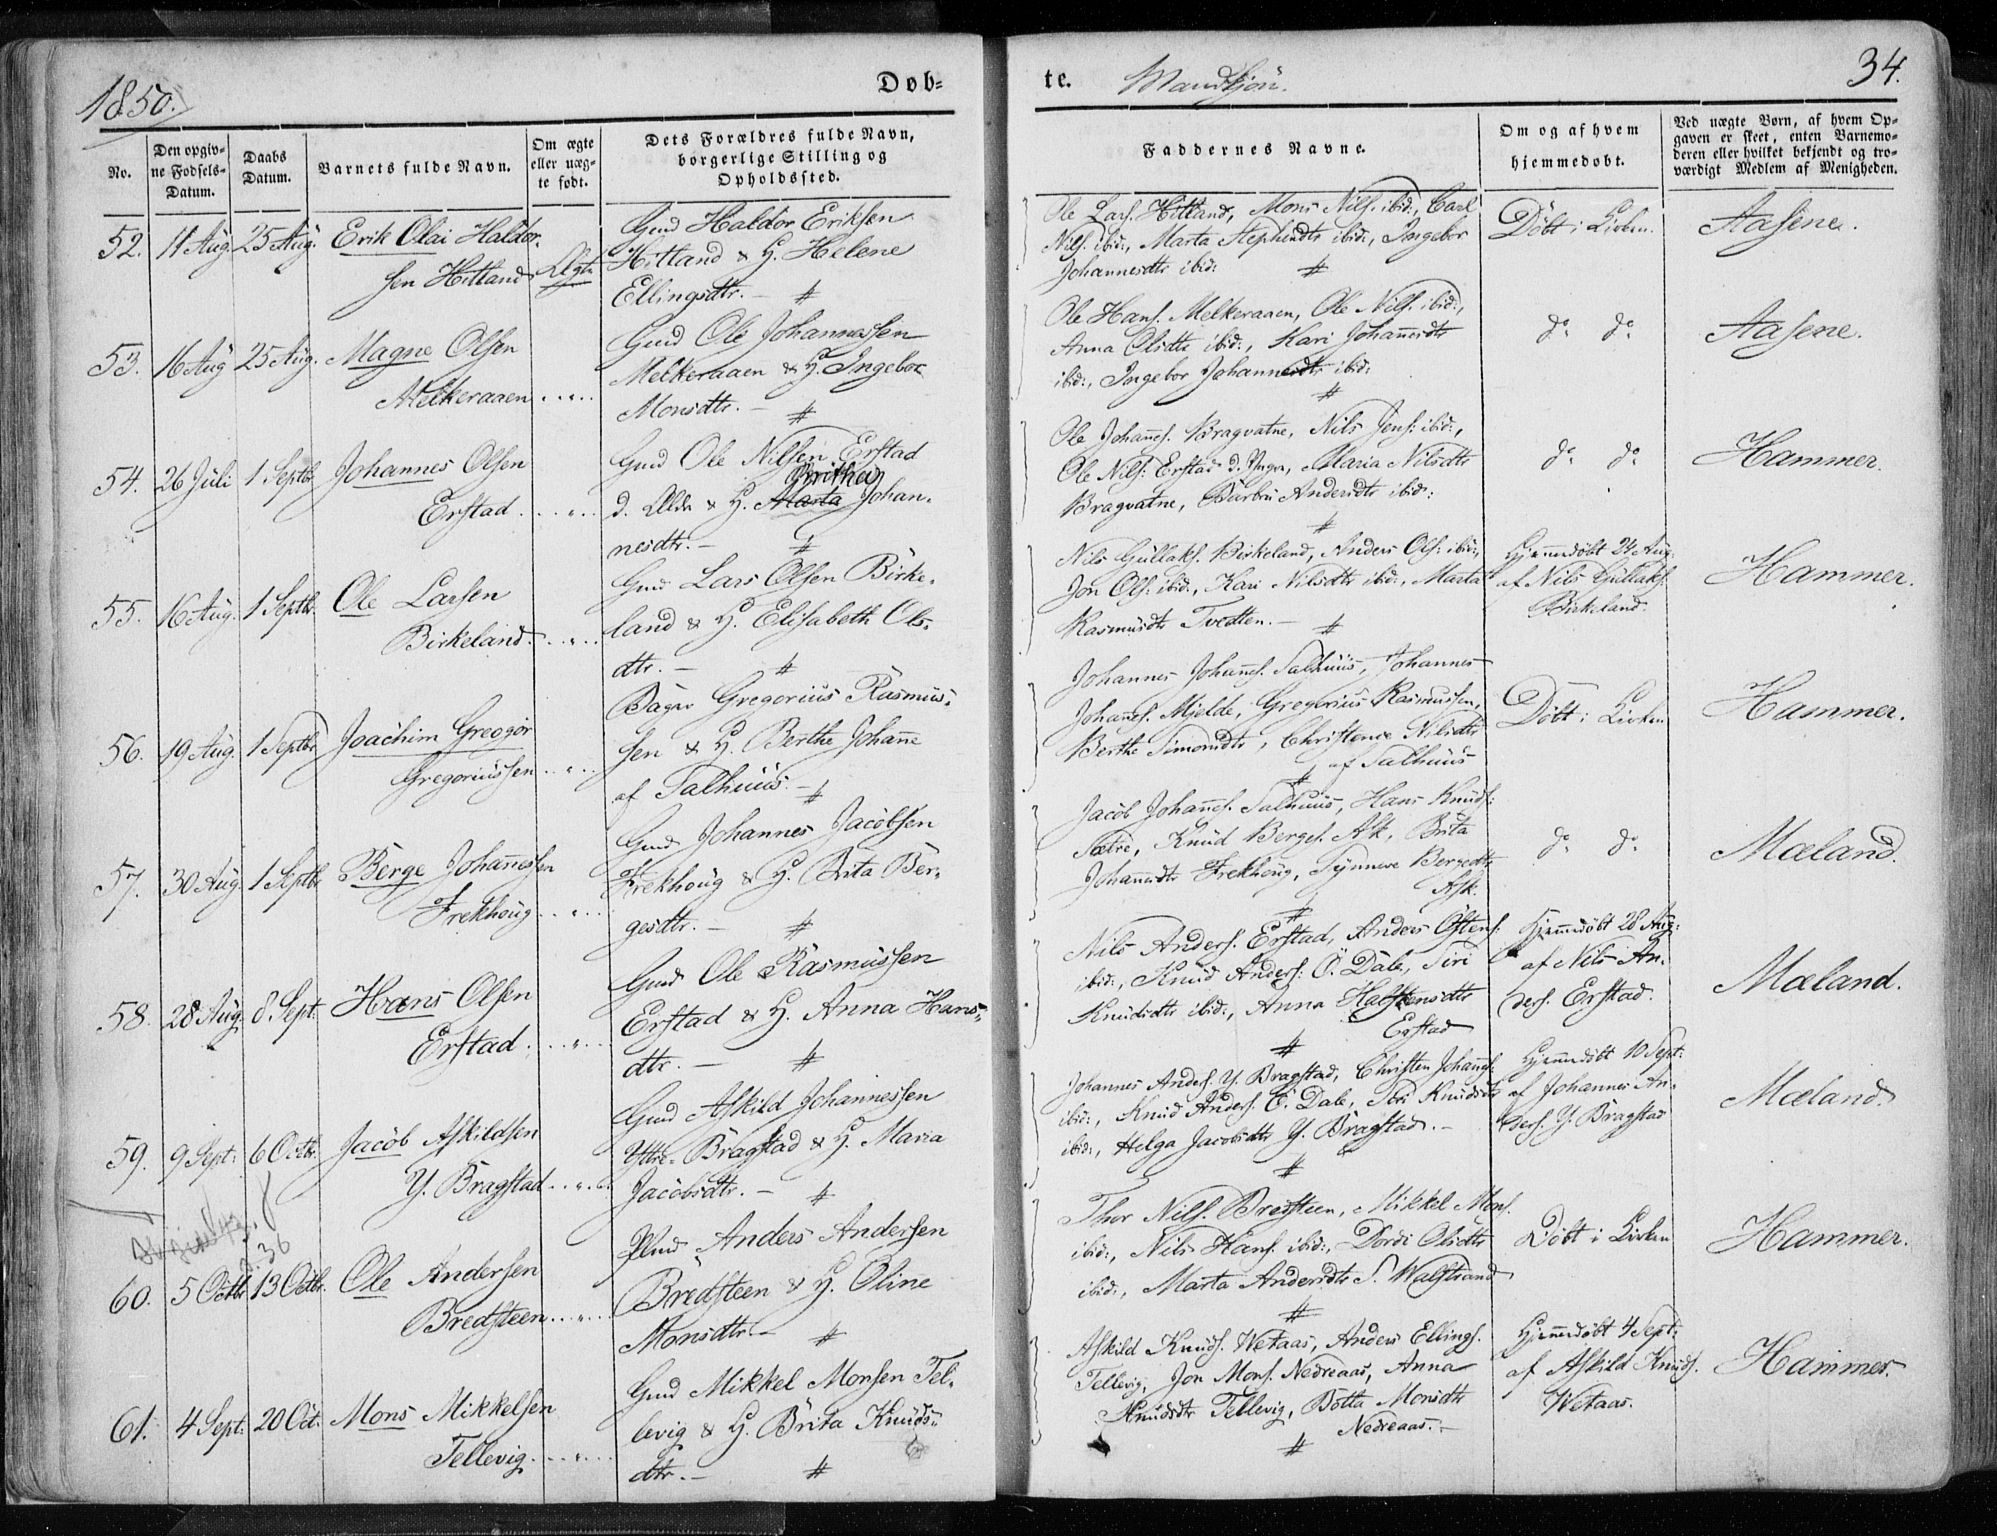 1850.
Døb=
No.
Den opgiv=
ne Fødsels=
Datum.
Daabs
Datum.
Barnets fulde Navn.
Om ægte
eller uæg=
te født.
Dets Forældres fulde Navn,
borgerlige Stilling og
Opholdssted.
52. 11 Aug. 25 Aug. Erik Olai Haldor-
sen Hitland Ægte
Gmd Haldor Eriksen
Hitland & H. Helene
Ellingsdtr. –
53. 16 Aug 25 Aug. Magne Olsen
Melkeraaen . . „ . .
Gmd Ole Johannessen
Melkeraaen & H. Ingebor
Monsdtr. –
54. 26 Juli 1 Septbr Johannes Olsen
Erstad . . . „ . .
Gmd Ole Nilsen Erstad
Brithe
d. Ældr & H. Marta Johan-
nesdtr. –
55. 16 Aug. 1 Septbr. Ole Larsen
Birkeland . . „ . .
Gmd Lars Olsen Birke-
land & H. Elisabeth Ols-
dtr. –
56. 19 Aug. 1 Septbr Joachim Greggor
Gregoriussen . . „ . .
Bager Gregorius Rasmus-
sen & H. Berthe Johañe
af Salhuus. –
57. 30 Aug 1 Septbr Berge Johañessen
Frekhoug . . „
Gmd Johannes Jacobsen
Frekhoug & H. Brita Ber-
gesdtr. –
58. 28 Aug. 8 Sept. Hans Olsen
Erstad . . . „ . .
Gmd Ole Rasmussen
Erstad & H. Anna Hans-
dtr. –
59. 9 Sept: 6 Octbr. Jacob Askildsen
Y. Bragstad . . „ . .
Gmd Askild Johannessen
Yttre-Bragstad & H. Maria
Jacobsdtr. –
p. 36
60. 5 Octbr 13 Octbr. Ole Andersen
Bredsteen . . „ . .
Anders Andersen
Bredsteen & H. Oline
Monsdtr. –
61. 4 Sept: 20 Oct. Mons Mikkelsen
Tellevig . . . „ . .
Gmd Mikkel Monsen Tel-
levig & H. Brita Knuds-
dtr. –
te. Mandkjøn. 34.
Faddernes Navne.
Om og af hvem
hjemmedøbt.
Ved uægte Børn, af hvem Op=
gaven er skeet, enten Barnemo=
deren eller hvilket bekjendt og tro=
værdigt Medlem af Menigheden.
Ole Lars. Hitland, Mons Nils. ibid:, Carl
Nils. ibid:, Marta Stephensdtr ibid:, Ingebor
Johannesdtr ibid:
Døbt i Kirken. Aasene.
Ole Hans. Melkeraaen, Ole Nils. ibid:,
Anna Olsdtr ibid:, Kari Johañesdtr
ibid:, Ingebor Johannesdtr ibid:
do do Aasene.
Ole Johañes. Bragvatne, Nils Jens: ibid:,
Ole Nils: Erstad d. Yngre, Maria Nilsdtr
Bragvatne, Barbru Andersdtr ibid:
do do Hammer.
Nils Gullaks. Birkeland, Anders Ols: ibid:,
Jon Ols: ibid:, Kari Nilsdtr ibid:, Marta
Rasmusdtr Tvedten. –
Hjemmedøbt 24 Aug:
af Nils Gullaks.
Birkeland.
Hammer.
Johannes Johañes. Salhuus, Johannes
Johañes. Mjelde, Gregorius Rasmussen,
Berthe Simonsdtr, Christence Nilsdtr
af Salhuus
Døbt i Kirken Hammer.
Jacob Johañes. Salhuus, Hans Knuds:
Sætre, Knud Berges. Ask, Brita
Johañesdtr Frekhoug, Synneve Bergesdtr
Ask.
do do Mæland.
Nils Anders. Erstad, Anders Østens.
ibid:, Knud Anders. Ö. Dale, Siri
Knudsdtr ibid:, Anna Halstensdtr
Erstad
Hjemmedøbt 28 Aug:
af Nils An-
ders. Erstad.
Mæland.
Johannes Anders. Y. Bragstad, Christen Johañes.
ibid:, Knud Anders. Ö. Dale, Siri Knudsdtr
ibid:, Helga Jacobsdtr Y. Bragstad. –
Hjemmedøbt 10 Sept:
af Johannes An-
ders. Y. Bragstad
Mæland.
Thor Nils. Bredsteen, Mikkel Mons.
ibid:, Nils Hans. ibid:, Dordi Olsdtr
ibid:, Marta Andersdtr S. Walstrand
Døbt i Kirken Hammer.
Askild Knuds. Wetaas, Anders Ellings.
Tellevig, Jon Mons. Nedreaas, Anna
Knudsdtr Tellevig, Botta Monsdtr
Nedreaas. –
Hjemmedøbt 4 Sept:
af Askild Knuds.
Wetaas.
Hammer.